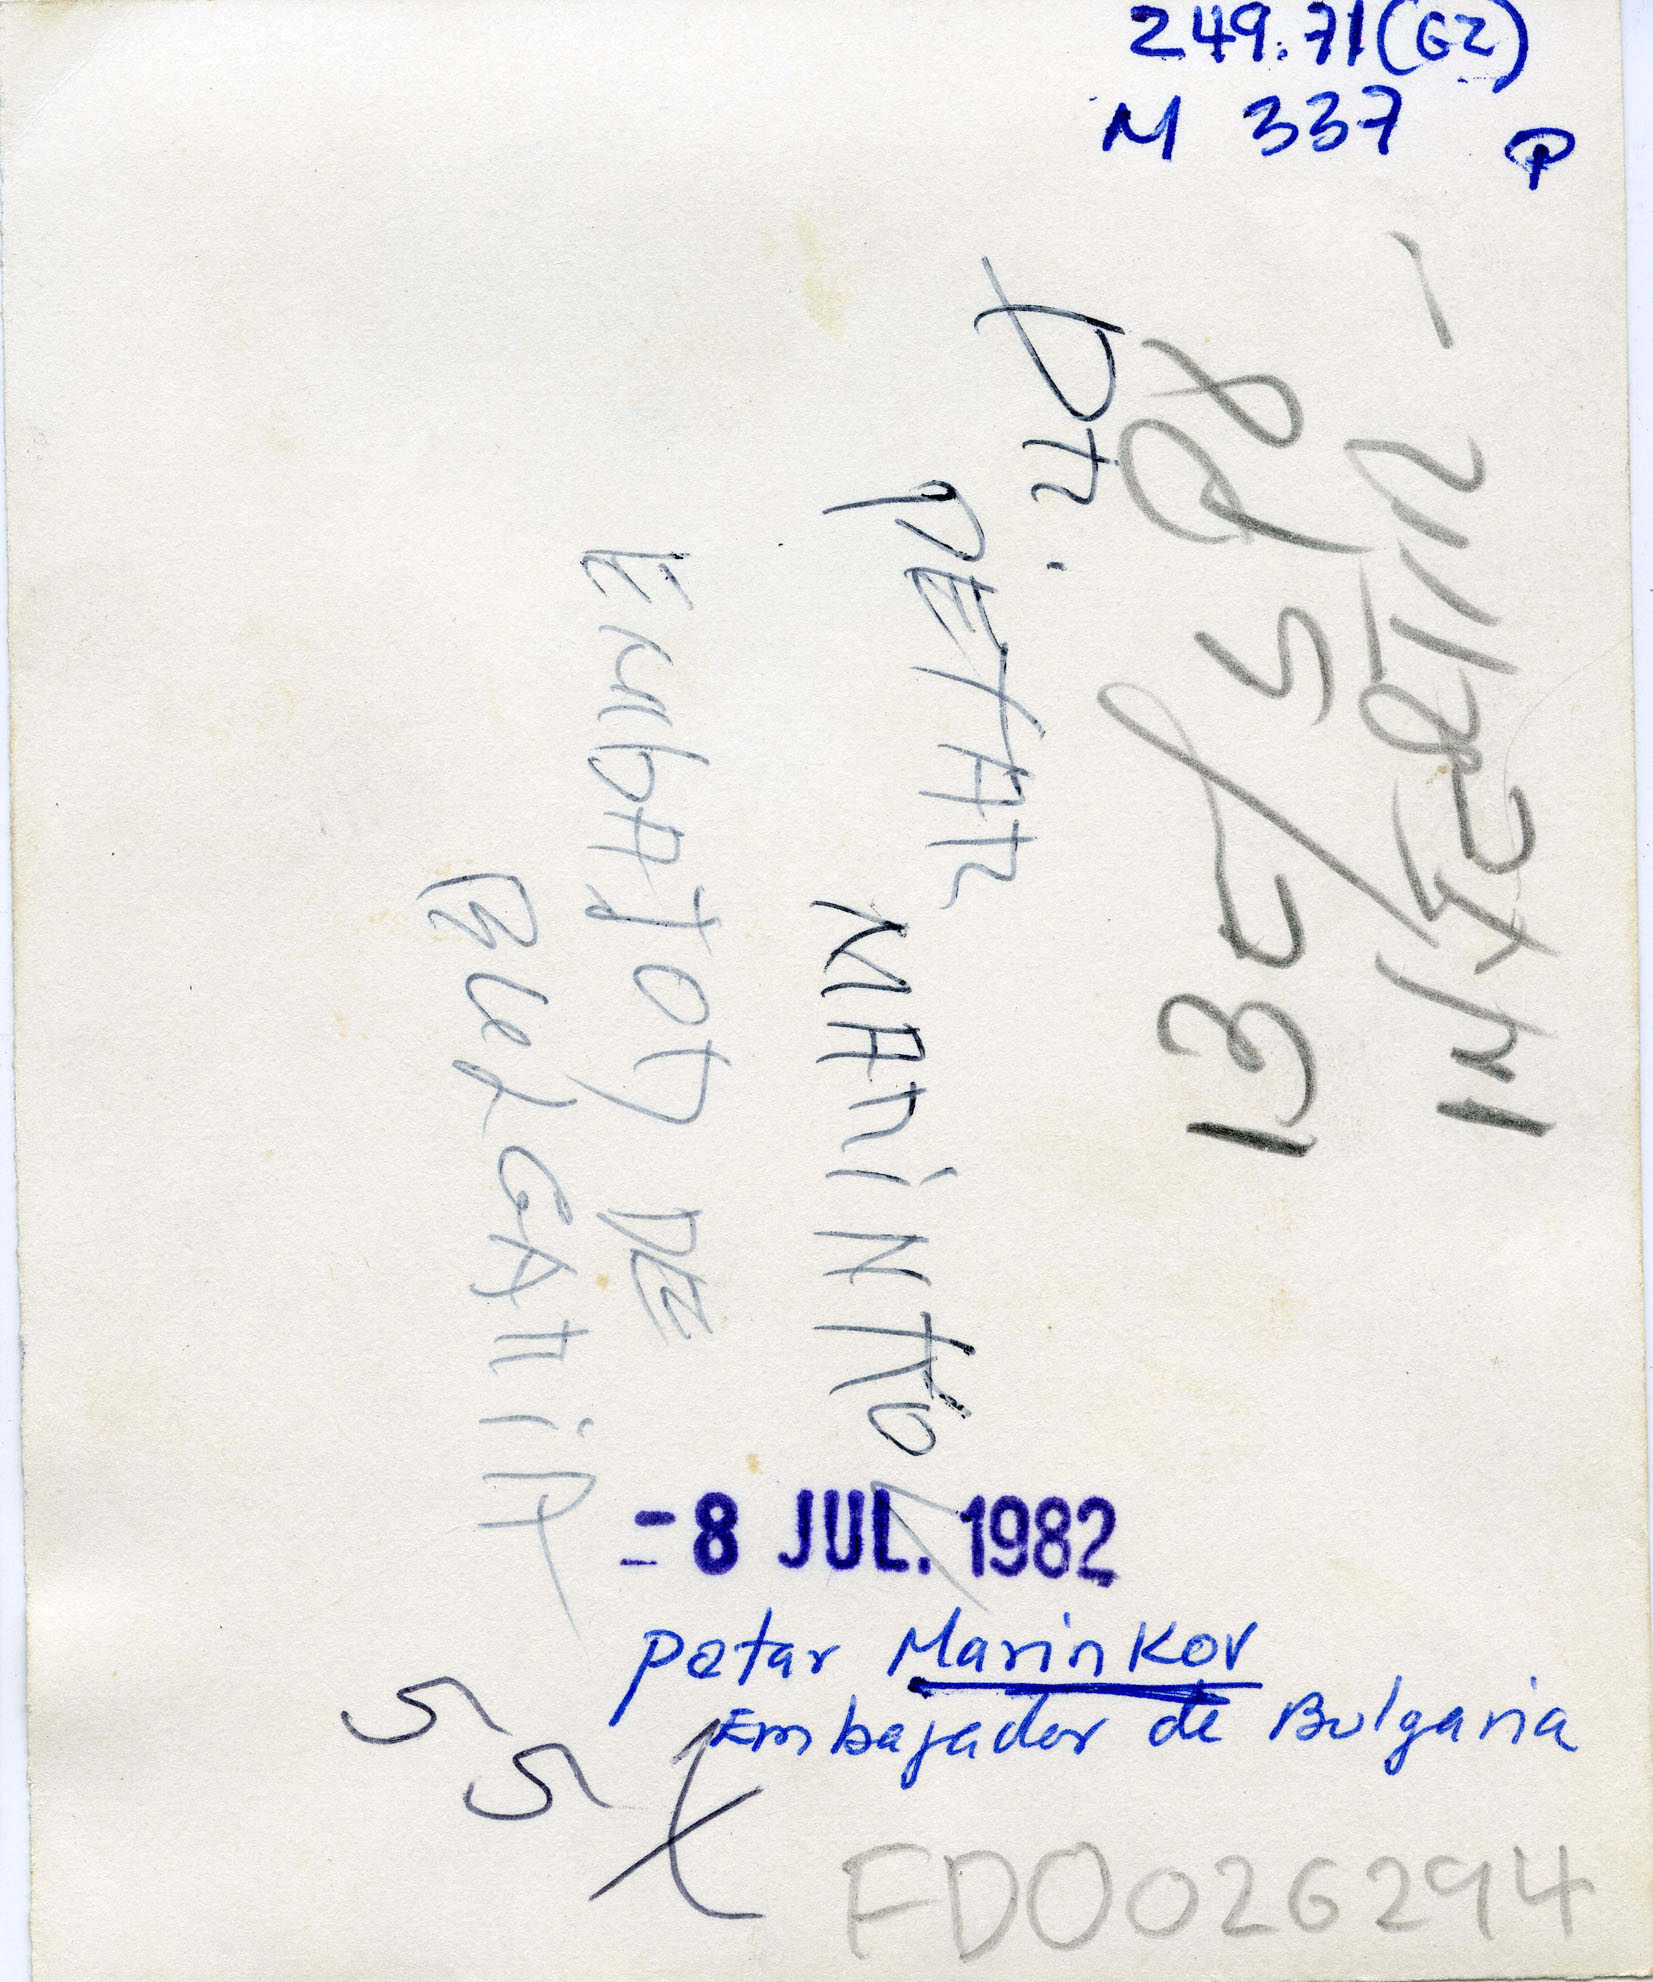 249.71(GZ)
M 337 P
Dr.
PETAr
MAriNKOV
EmbAJOr DE
BUlGAriA
-8 JUL. 1982
Petar Marinkov
Embajador de Bulgaria
55
FD0026294